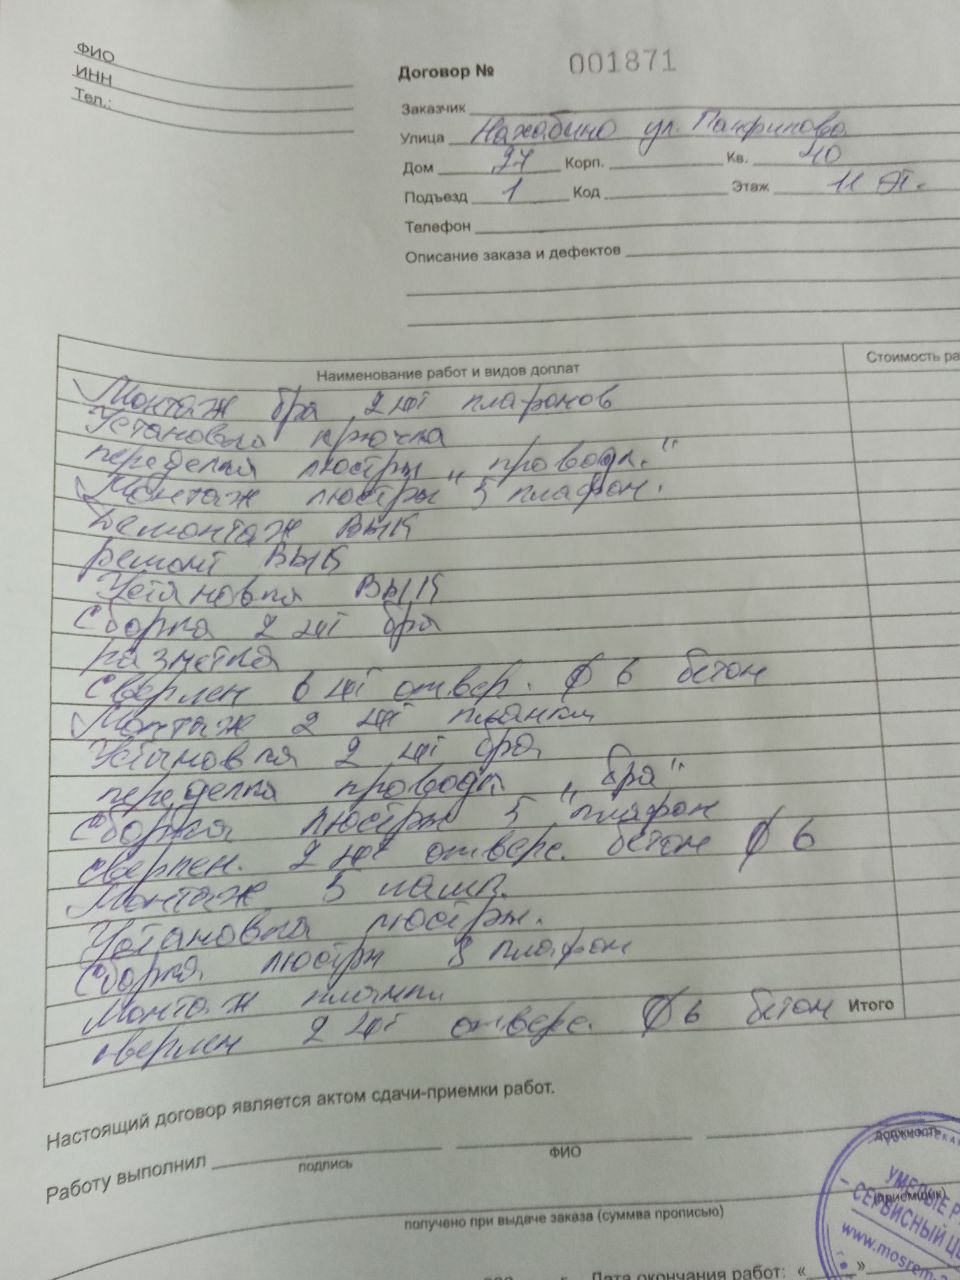 ФИО
ИНН
Тел.:
Договор № 001871
Заказчик
Улица Нахабино ул. Панфилова
Дом 27 Корп. Кв. 40
Подъезд 1 Код Этаж 11 эт.
Телефон
Описание заказа и дефектов
Наименование работ и видов доплат Стоимость ра
Монтаж бра 2 шт плафонов
Установка крючка
переделка люстры "провода."
Монтаж люстры 5 плафон.
Демонтаж выкл
ремонт выкл
Установка выкл
Сборка 2 шт бра
разметка
сверлен 6 шт отвер. ∅ 6 бетон
Монтаж 2 шт планки
Установка 2 шт бра
переделка провода "бра"
Сборка люстры 5 плафон
сверлен. 2 шт отверс. бетон ∅ 6
Монтаж 5 ламп.
Установка люстры.
Сборка люстры 3 плафон
Монтаж планки
сверлен 2 шт отверс. ∅ 6 бетон Итого
Настоящий договор является актом сдачи-приемки работ.
Работу выполнил
подпись ФИО должность
(приемщик)
получено при выдаче заказа (суммва прописью)
Дата окончания работ: « »
УМЕЛЫЕ Р
СЕРВИСНЫЙ ЦЕ
www.mosrem